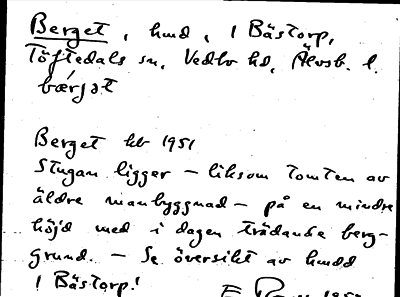 Berget, hmd, 1 Båstorp,
Töftedals sn, Vedbo hd, Älvsb. l.
bærjət
Berget hb 1951
Stugan ligger - liksom tomten av
äldre manbyggnad - på en mindre
höjd med i dagen trädande berg-
grund. - Se översikt av hmdd
1 Båstorp!